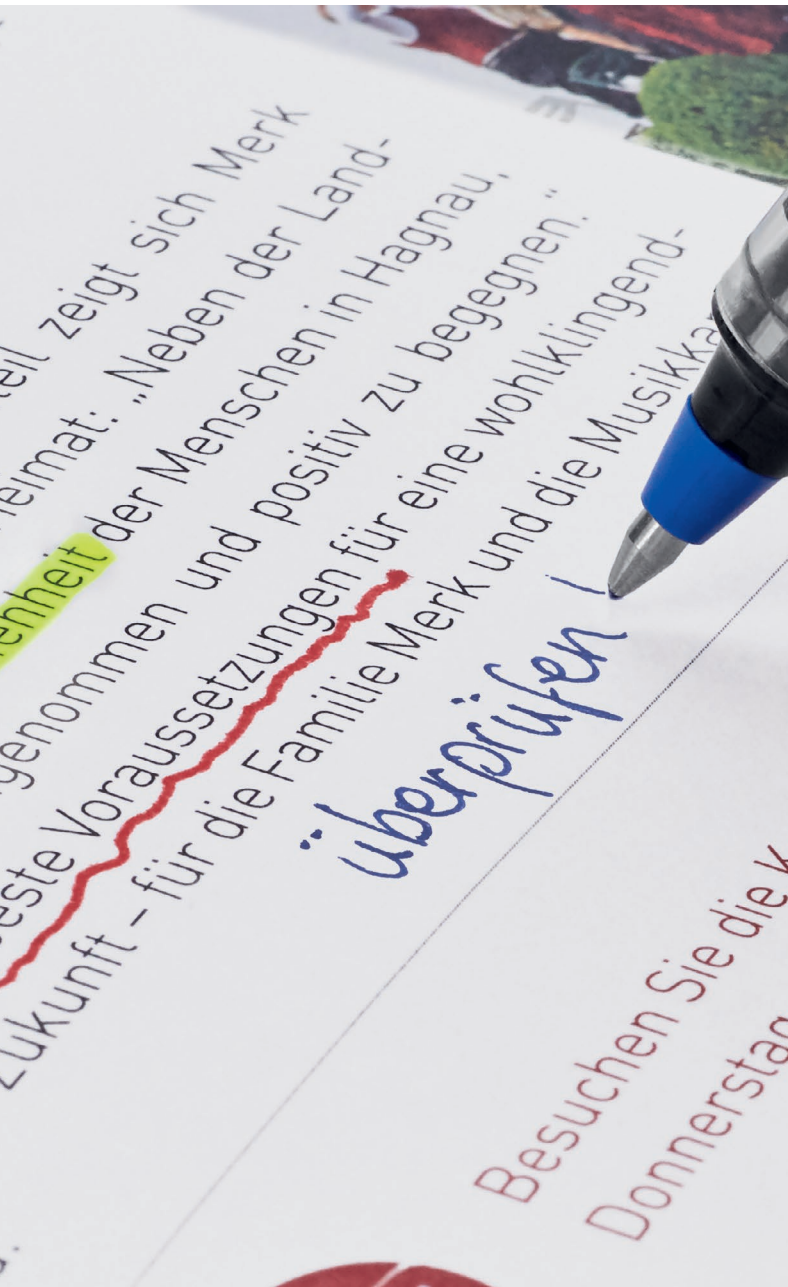 zeigt sich Merk
„Neben der Land-
der Menschen in Hagnau,
und positiv zu begegnen."
Voraussetzungen für eine wohlklingend-
Zukunft – für die Familie Merk und die
überprüfen!
Besuchen Sie die
Donnerstag